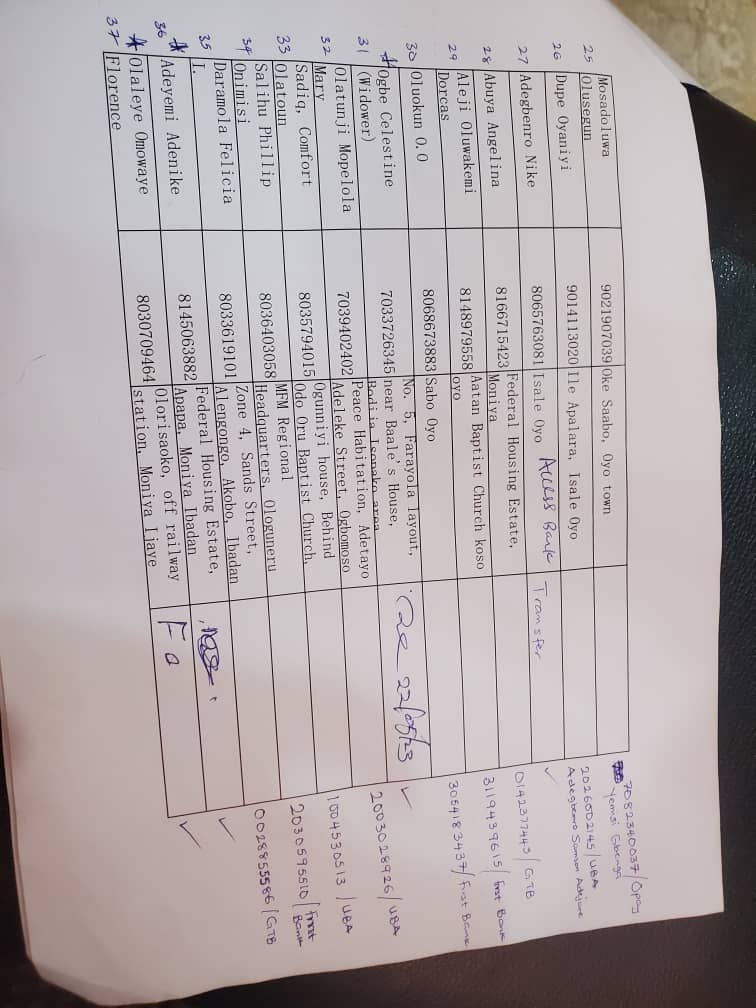 25 Mosadoluwa Olusegun 9021907039 Oke Saabo, Oyo town 7082340037/Opay
Yemisi Gbenga
26 Dupe Oyaniyi 9014113020 Ile Apalara, Isale Oyo 2026002145/UBA
Adegbenro Samson
27 Adegbenro Nike 8065763081 Isale Oyo Access Bank Transfer ✓ 0142377443/GTB
28 Abuya Angelina 8166715423 Federal Housing Estate, Moniya 3119439615/First Bank
29 Aleji Oluwakemi Dorcas 8148979558 Aatan Baptist Church koso oyo 3054183437/First Bank
30 Oluokun O.O 8068673883 Sabo Oyo ✓
Ogbe Celestine (Widower) 7033726345 No. 5, Farayola layout, near Baale's House, 22/05/23 2003028926/UBA
31 Olatunji Mopelola Mary 7039402402 Peace Habitation, Adetayo Adeleke Street, Ogbomoso 1004530513/UBA
32 Sadiq, Comfort Olatoun 8035794015 Ogunniyi house, Behind Odo Oru Baptist Church, 2030595510/First Bank
33 Salihu Phillip Onimisi 8036403058 MFM Regional Headquarters, Ologuneru 0028855586/GTB
34 Daramola Felicia I. 8033619101 Zone 4, Sands Street, Alengongo, Akobo, Ibadan ✓
35 Adeyemi Adenike 8145063882 Federal Housing Estate, Apapa, Moniya Ibadan ✓
36 Olaleye Omowaye Florence 8030709464 Olorisaoko, off railway station, Moniya Ijaye
37